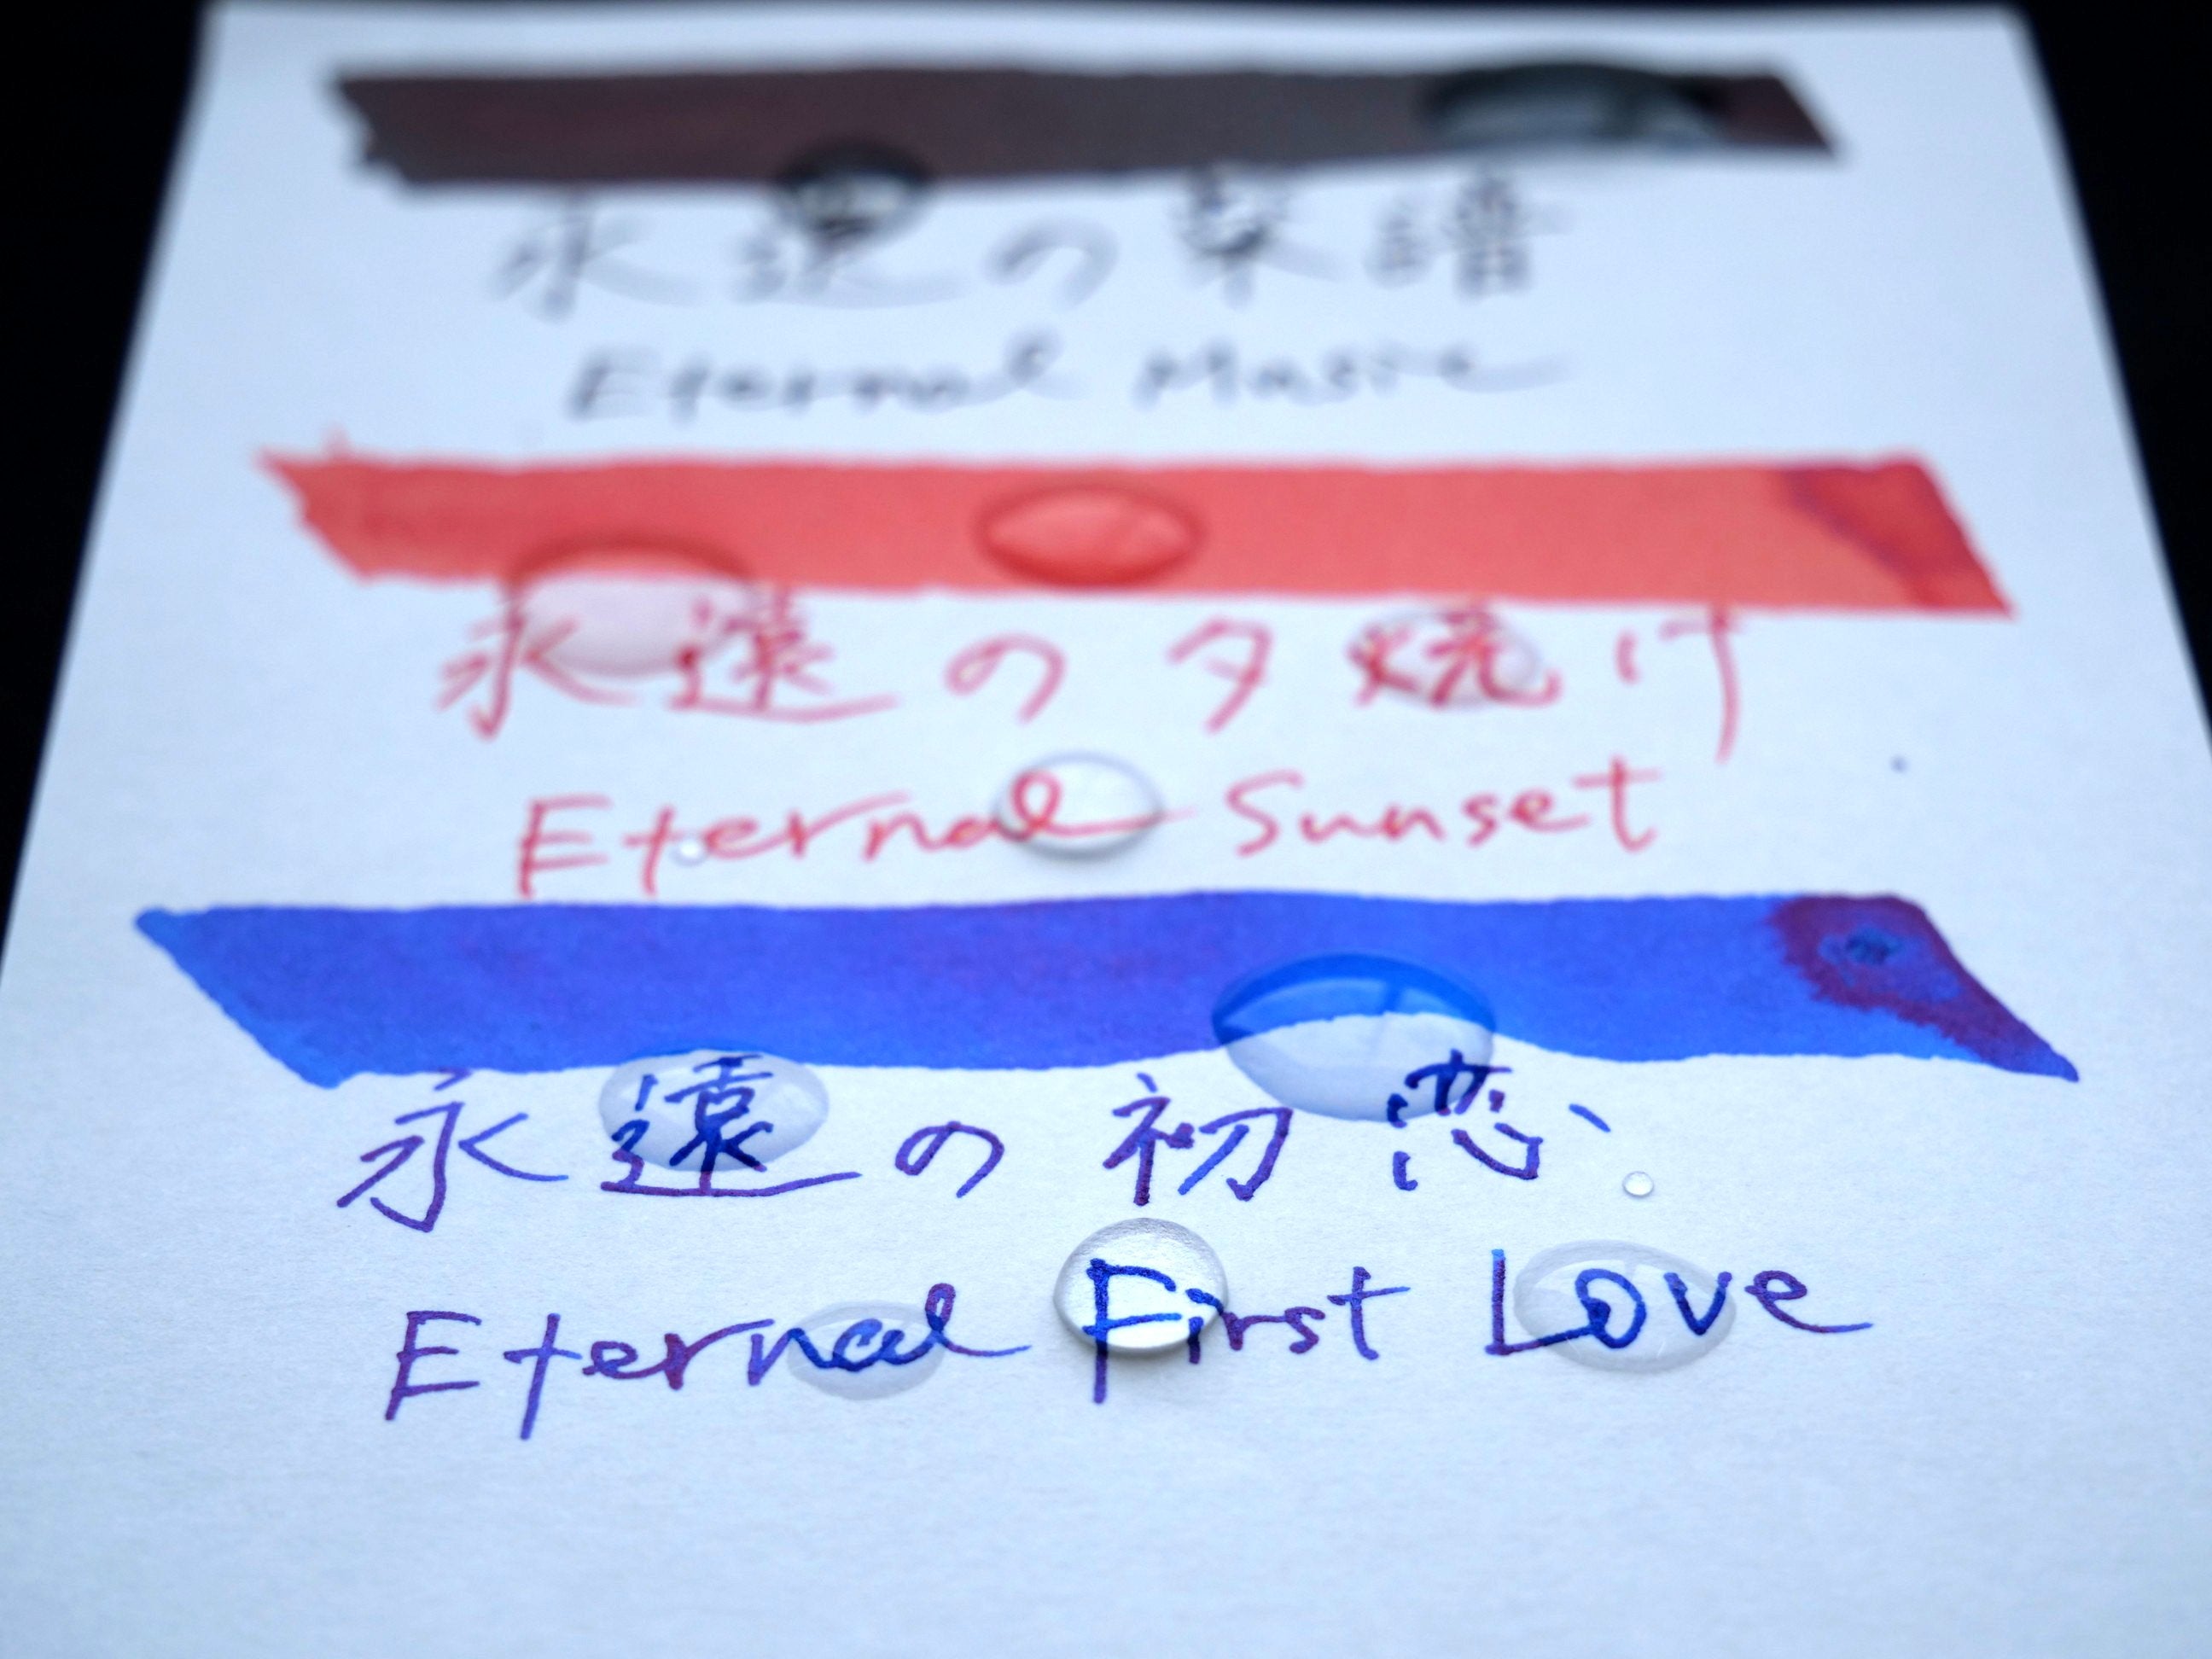 永遠の楽譜
Eternal Music
永遠の夕焼け
Eternal Sunset
永遠の初恋
Eternal First Love